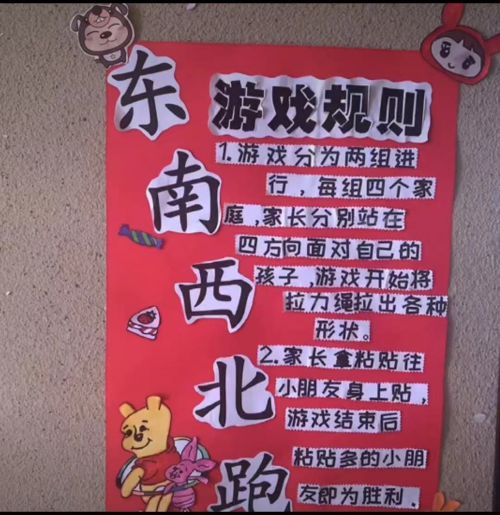 东南西北跑
游戏规则
1.游戏分为两组进
行，每组四个家
庭,家长分别站在
四方向面对自己的
孩子,游戏开始将
拉力绳拉出各种
形状。
2.家长拿粘贴往
小朋友身上贴，
游戏结束后
粘贴多的小朋
友即为胜利.